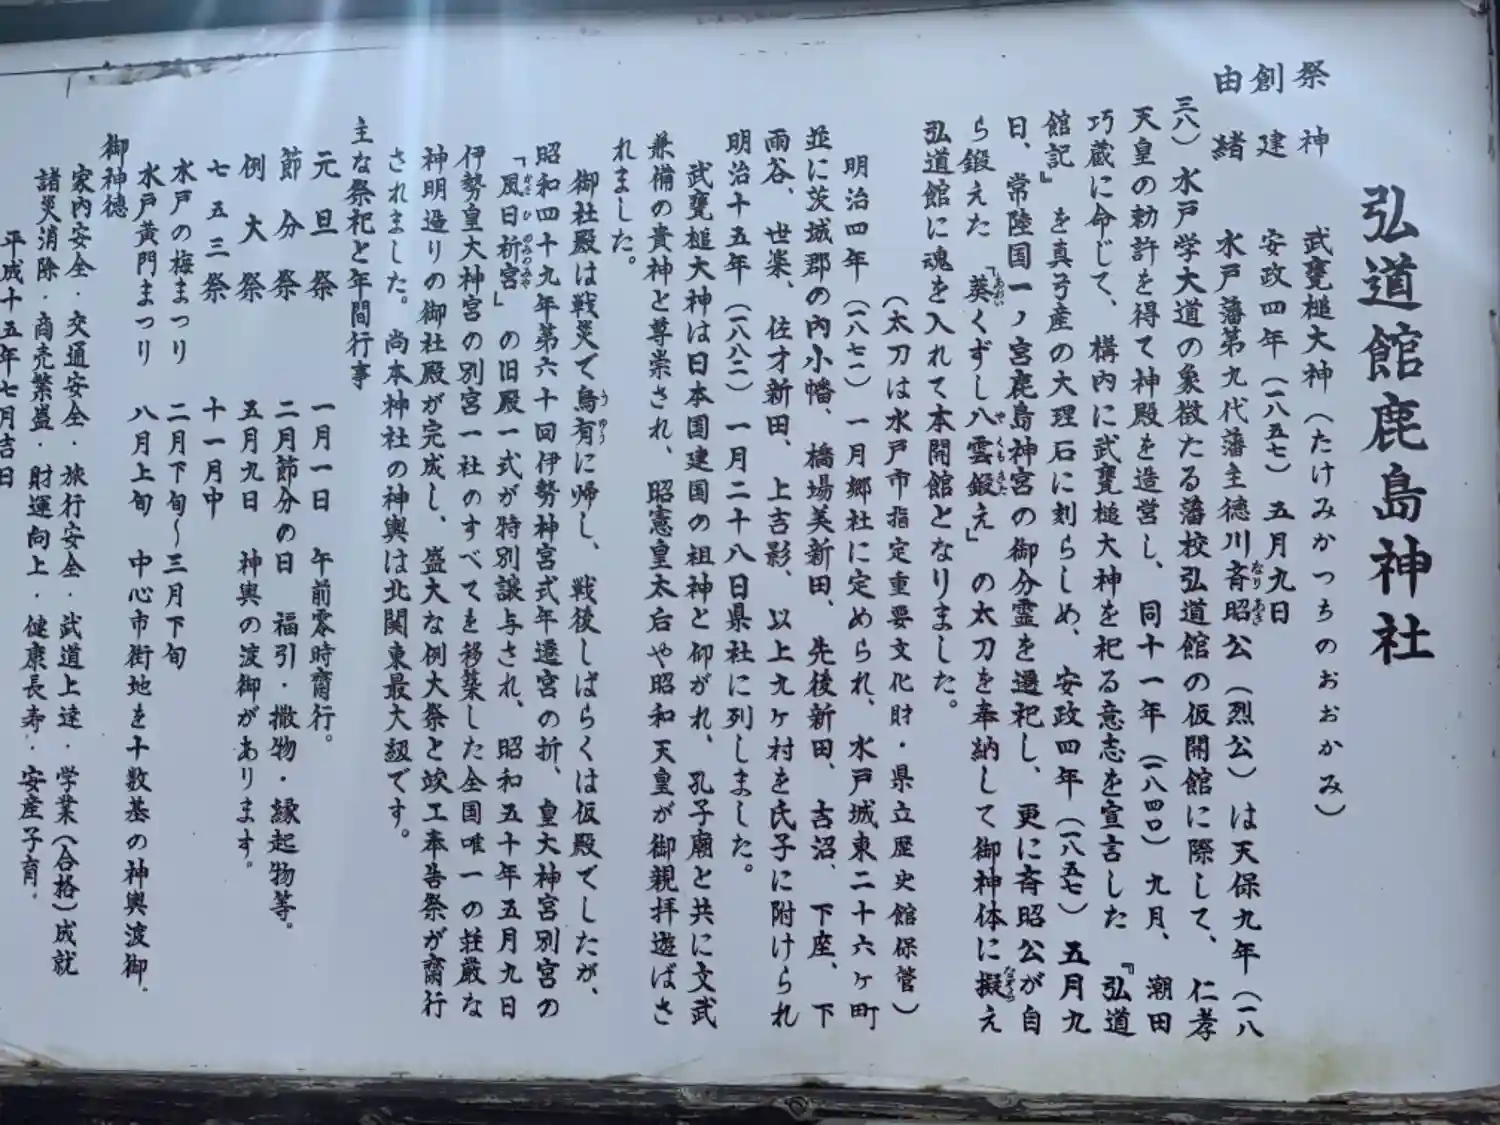 弘道館鹿島神社
祭神 武甕槌大神(たけみかつちのおおかみ)
創建 安政四年(一八五七)五月九日
由緒 水戸藩第九代藩主徳川斉昭公(烈公)は天保九年(一八
三八)水戸学大道の象徴たる藩校弘道館の仮開館に際して、仁孝
天皇の勅許を得て神殿を造営し、同十一年(一八四〇)九月、潮田
巧蔵に命じて、構内に武甕槌大神を祀る意志を宣言した『弘道
館記』を真弓産の大理石に刻らしめ、安政四年(一八五七)五月九
日、常陸国一ノ宮鹿島神宮の御分霊を遷祀し、更に斉昭公が自
ら鍛えた「葵くずし八雲鍛え」の太刀を奉納して御神体に擬え
弘道館に魂を入れて本開館となりました。
(太刀は水戸市指定重要文化財・県立歴史館保管)
明治四年(一八七一)一月郷社に定められ、水戸城東二十六ヶ町
並に茨城郡の内小幡、橋場美新田、先後新田、吉沼、下座、下
雨谷、世楽、佐才新田、上吉影、以上九ヶ村を氏子に附けられ
明治十五年(一八八二)一月二十八日県社に列しました。
武甕槌大神は日本国建国の祖神と仰がれ、孔子廟と共に文武
兼備の貴神と尊崇され、昭憲皇太后や昭和天皇が御親拝遊ばさ
れました。
御社殿は戦災で烏有に帰し、戦後しばらくは仮殿でしたが、
昭和四十九年第六十回伊勢神宮式年遷宮の折、皇大神宮別宮の
「風日祈宮」の旧殿一式が特別譲与され、昭和五十年五月九日
伊勢皇大神宮の別宮一社のすべてを移築した全国唯一の荘厳な
神明造りの御社殿が完成し、盛大な例大祭と竣工奉告祭が齋行
されました。尚本神社の神輿は北関東最大級です。
主な祭祀と年間行事
元旦祭 一月一日 午前零時齋行。
節分祭 二月節分の日 福引・撒物・縁起物等。
例大祭 五月九日 神輿の渡御があります。
七五三祭 十一月中
水戸の梅まつり 二月下旬〜三月下旬
水戸黄門まつり 八月上旬 中心市街地を十数基の神輿渡御.
御神徳
家内安全・交通安全・旅行安全・武道上達・学業(合格)成就
諸災消除・商売繁盛・財運向上・健康長寿・安産子育.
平成十五年七月吉日